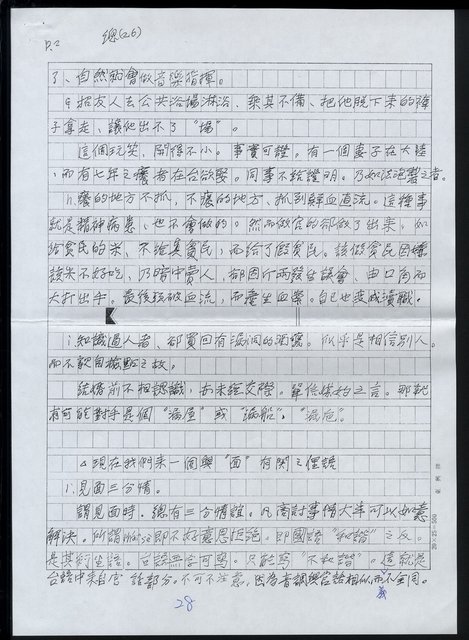 P.2
總(26)
了、自然就會做音樂指揮。
g 招友人去公共浴場淋浴、乘其不備、把他脫下來的褲
子拿走、讓他出不了“場”。
這個玩笑、開得不小。事實可證。有一個妻子在大陸
、而有七年之癢者在台欲娶。同事不給證明。乃如法
h.癢的地方不抓，不癢的地方、抓到鮮血直流。這種事
就是精神病患，也不會做的。然而做官的卻做了出來，如
給貧民的米、不給真貧民，而給了假貧民。該假貧民因嫌
該米不好吃，乃暗中賣人，卻因斤兩發生誤會、由口角而
大打出手。最後頭破血流，而釀生血案。自己也變成瀆職。
i.知識過人者、卻買回有漏洞的酒甕。似乎是相信別人。
而不親自檢點之故。
結婚前不相認識，亦未經交際。單信媒妁之言。那就
有可能對手是個“漏屋”或“漏船”。“漏危”。
△現在我們來一個與“面”有関之俚諺
1.見面三分情。
謂見面時．總有三分情誼．凡商討事情大半可以如意
解決．所謂 即不好意思拒絕．即國語“和諧”之反。
是其衍生語。台語無字可寫。只能寫“不和諧”。這就是
台語中來自官話部分。不可不注意，因為音調與官話相似而不全同。
28